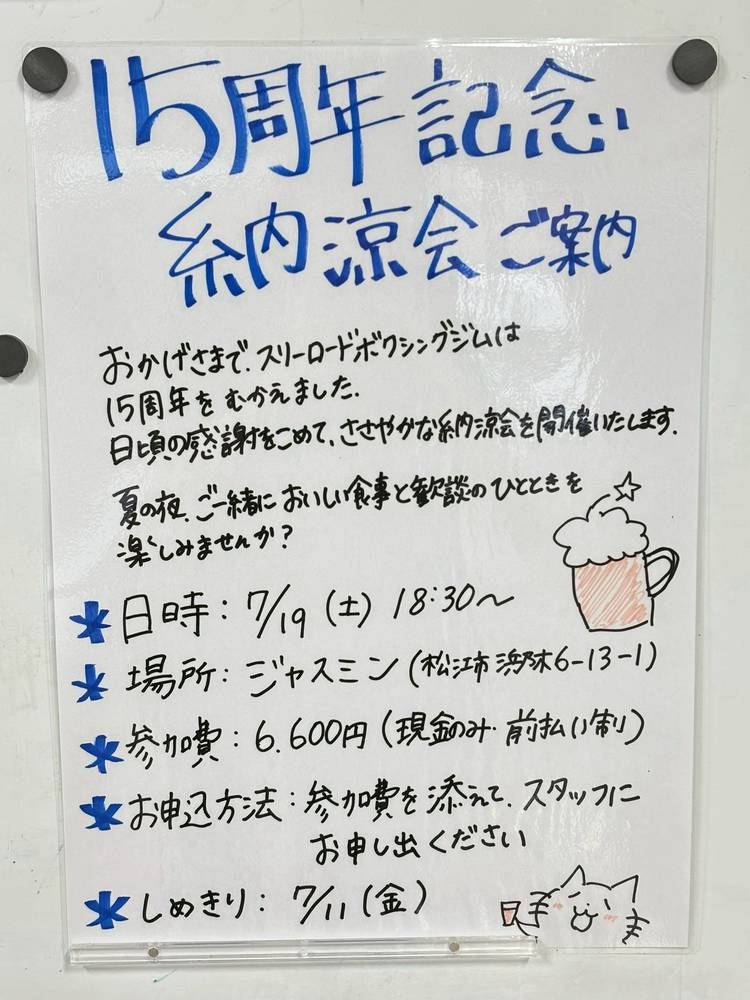 15周年記念
納涼会ご案内
おかげさまで、スリーロードボクシングジムは
15周年をむかえました。
日頃の感謝をこめて、ささやかな納涼会を開催いたします。
夏の夜、ご一緒においしい食事と歓談のひとときを
楽しみませんか?
＊日時：7/19(土) 18:30〜
＊場所：ジャスミン(松江市浜乃木6-13-1)
＊参加費：6.600円(現金のみ・前払い制)
＊お申込方法：参加費を添えて、スタッフに
お申し出ください
＊しめきり：7/11(金)